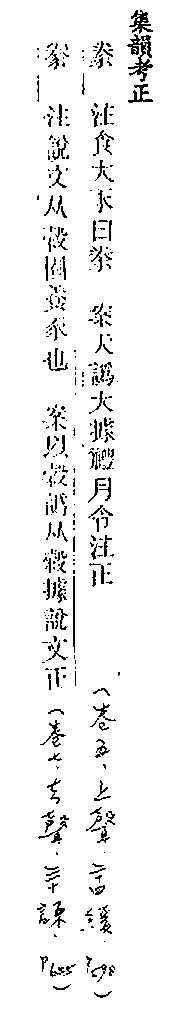 集韻考正
豢 注食大豕曰豢 案犬譌大據禮月令注正（卷五、上聲、二十四緩、P598）
豢 注說文从穀圈養豕也 案以穀譌从穀據說文正（卷七、去聲、三十諫、P655）